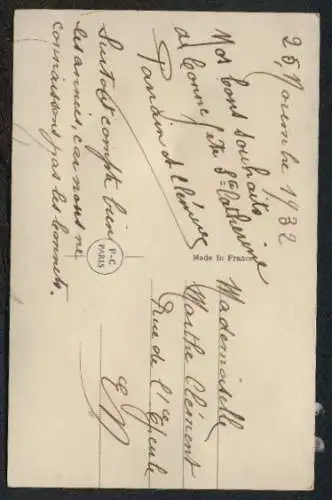 25, Novembre 1932
Nos bons souhaits
de bonne fête Ste Catherine
Parrain et Clémence
Surtout compte bien
les années, car nous ne
connaissons pas les bonnets.
P-C
PARIS
Made in France
Mademoiselle
Marthe Clément
Rue de l'
E V